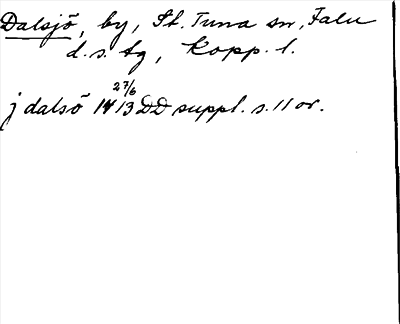 Dalsjö, by, St. Tuna sn, Falu
d. s. tg, Kopp. l.
27/6
j dalsö 1413 DD suppl. s. 11 or.